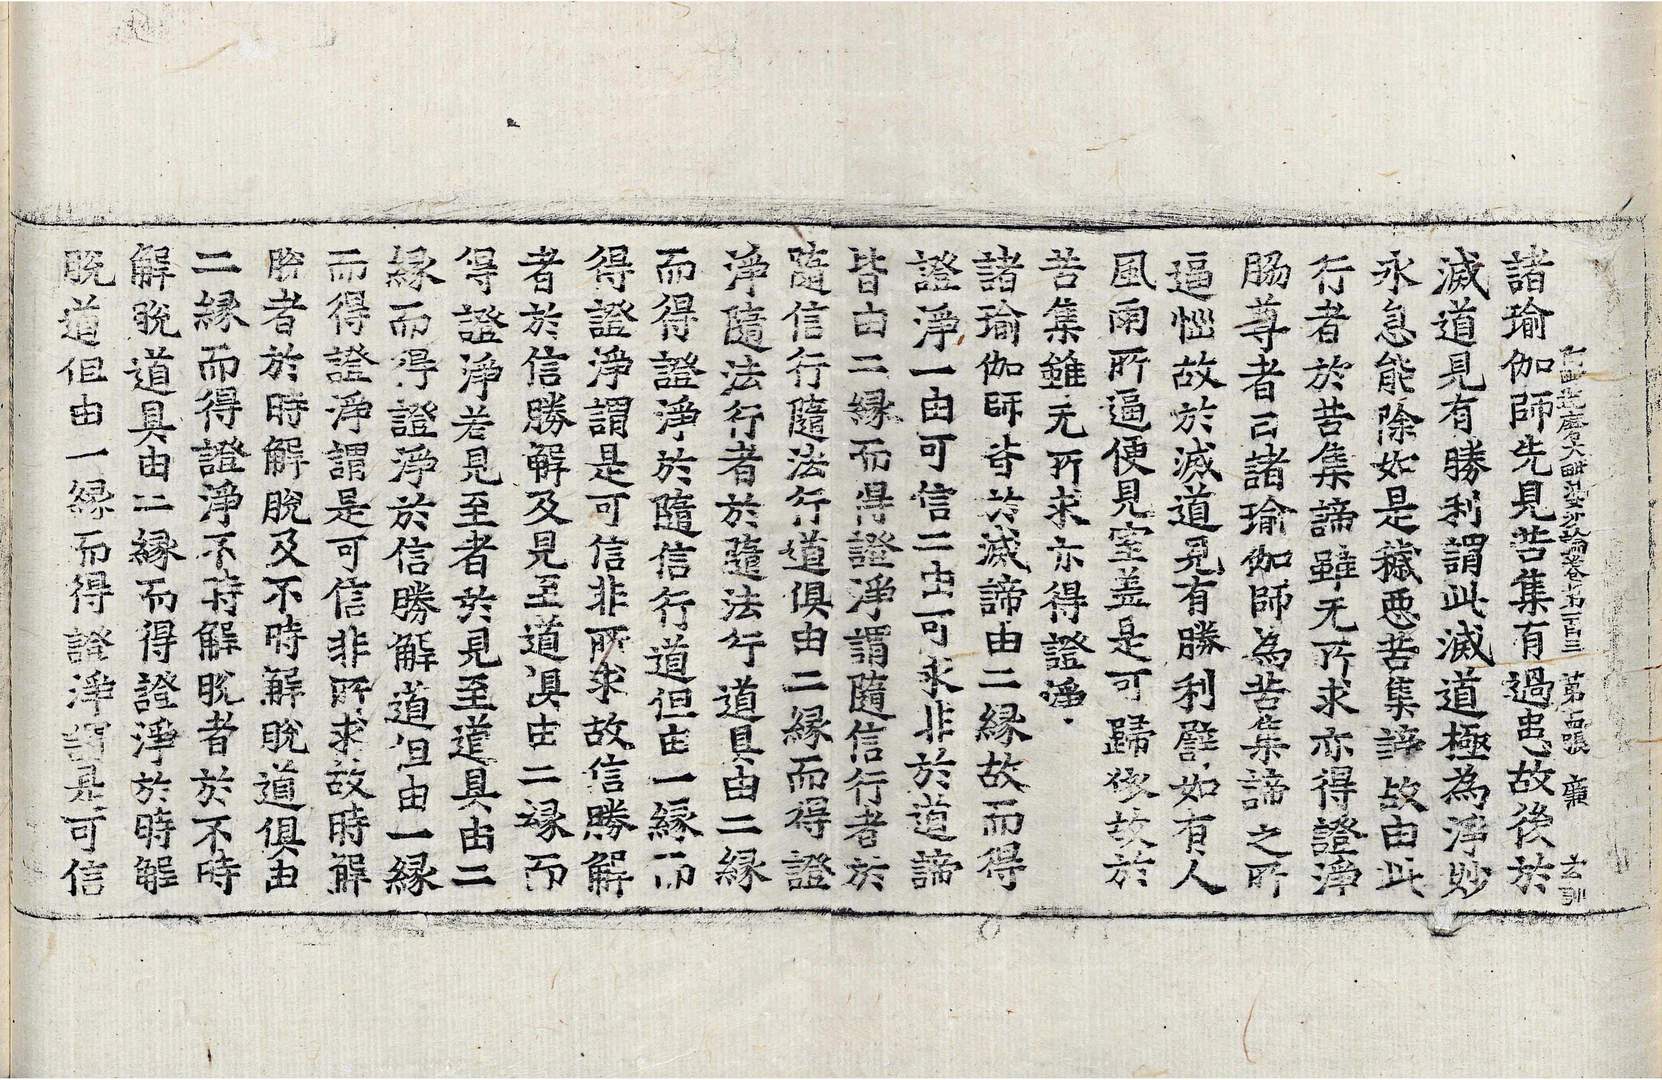 阿毗達磨大毗婆沙論卷第一百三　第二張　廉　玄訓
諸瑜伽師先見苦集有過患故後於
滅道見有勝利謂此滅道極為淨妙
永息能除如是穢惡苦集諦故由此
行者於苦集諦雖无所求亦得證淨
脇尊者曰諸瑜伽師為苦集諦之所
逼惱故於滅道見有勝利譬如有人
風雨所逼便見室盖是可歸依故於
苦集雖无所求亦得證淨
諸瑜伽師皆於滅諦由二緣故而得
證淨一由可信二由可求非於道諦
皆由二緣而得證淨謂隨信行者於
隨信行隨法行道俱由二緣而得證
淨隨法行者於隨法行道具由二緣
而得證淨於隨信行道但由一緣而
得證淨謂是可信非所求故信勝解
者於信勝解及見至道俱由二緣而
得證淨若見至者於見至道具由二
緣而得證淨於信勝解道但由一緣
而得證淨謂是可信非所求故時解
脫者於時解脫及不時解脫道俱由
二緣而得證淨不時解脫者於不時
解脫道具由二緣而得證淨於時解
脫道但由一緣而得證淨謂是可信